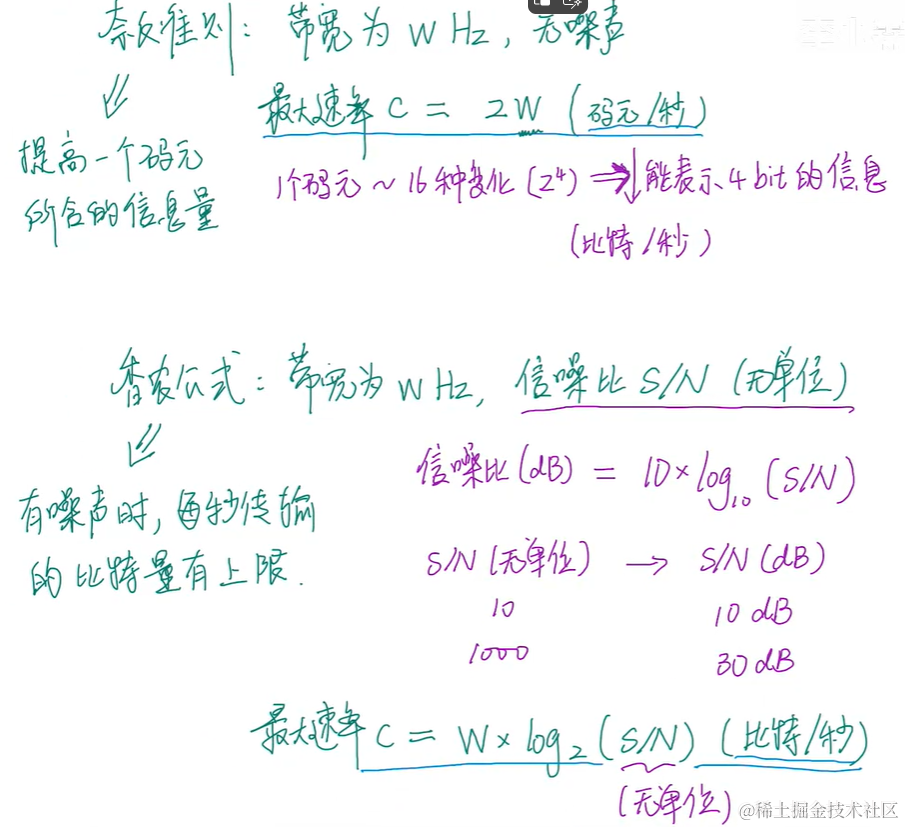 奈氏准则：带宽为 W Hz，无噪声
最大速率 C = 2W (码元/秒)
提高一个码元
所含的信息量
1个码元 ~ 16种变化 (2⁴) ⇒ 能表示 4 bit 的信息
(比特/秒)
香农公式：带宽为 W Hz，信噪比 S/N (无单位)
信噪比(dB) = 10×log₁₀ (S/N)
有噪声时，每秒传输
的比特量有上限.
S/N (无单位) → S/N (dB)
10 10 dB
1000 30 dB
最大速率 C = W × log₂ (S/N) (比特/秒)
(无单位)
@稀土掘金技术社区